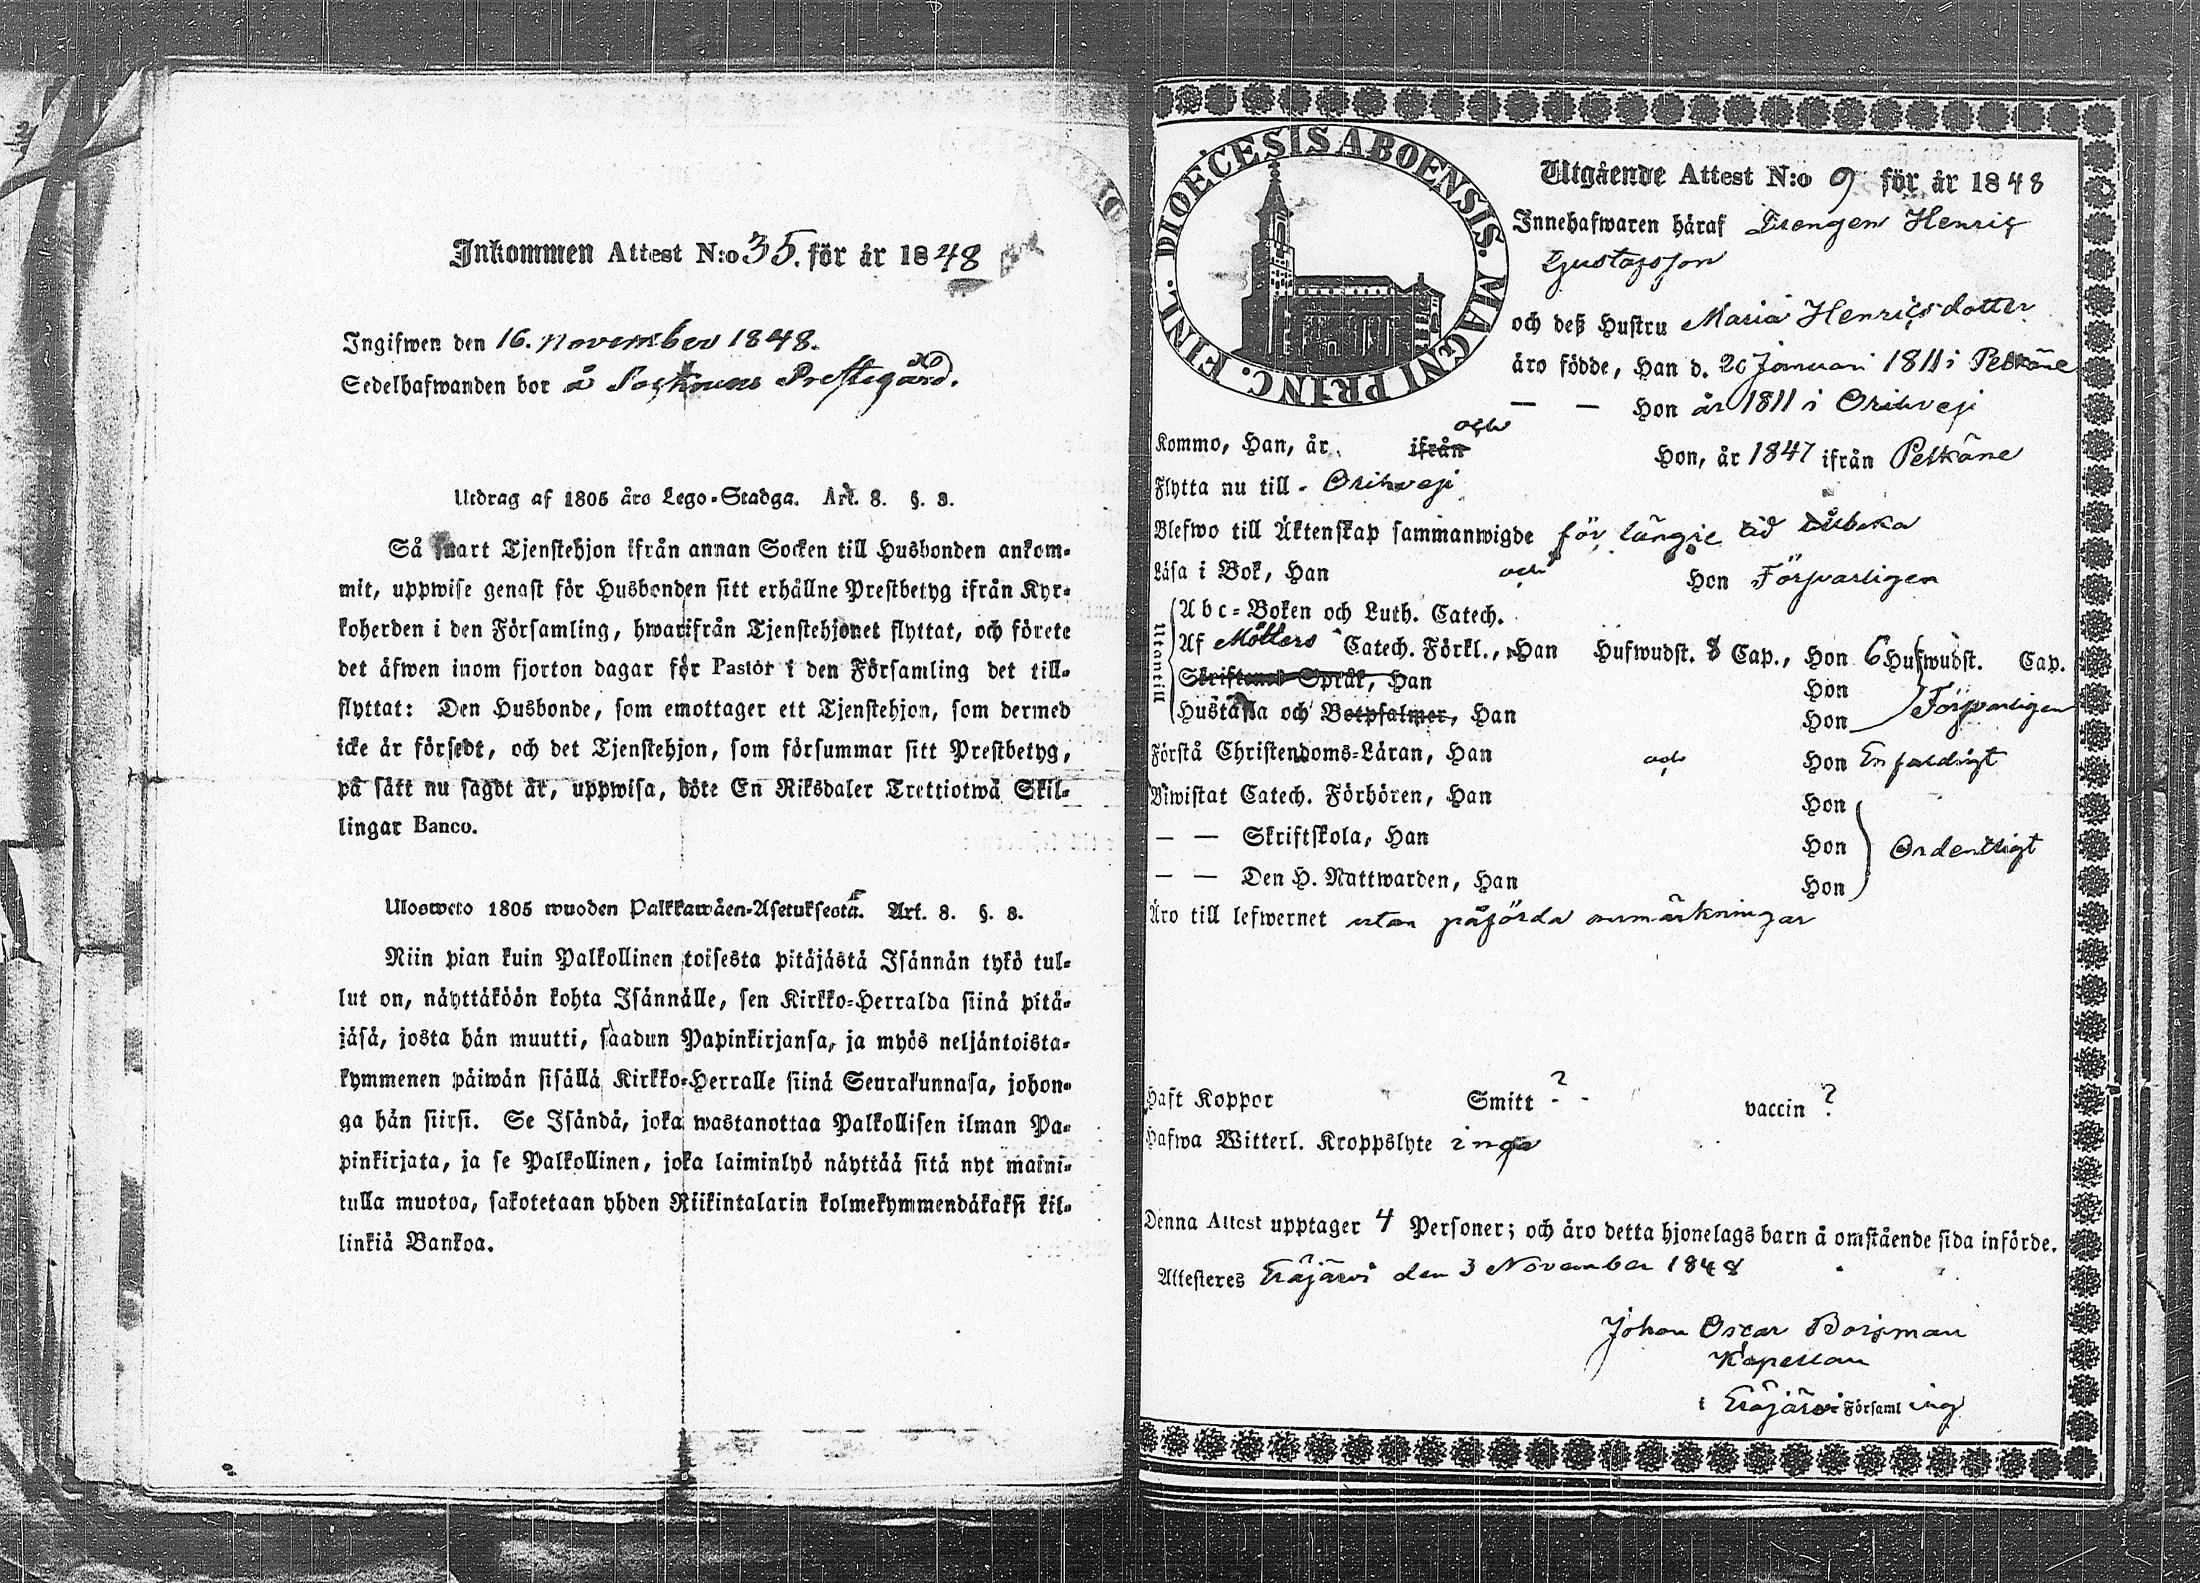 Inkommen Attest N:o 35. för år 1848
Ingifwen den 16. November 1848.
Sedelhafwanden bor å Socknens Prestegård.
Utdrag af 1805 års Lego-Stadga. Art. 8. §. 3.
Så snart Tjenstehjon ifrån annan Socken till Husbonden ankom-
mit, uppwise genast för Husbonden sitt erhållne Prestbetyg ifrån Kyr-
koherden i den Församling, hwarifrån Tjenstehjonet flyttat, och förete
det äfwen inom fjorton dagar för Pastor i den Församling det till-
flyttat: Den Husbonde, som emottager ett Tjenstehjon, som dermed
icke är försedt, och det Tjenstehjon, som försummar sitt Prestbetyg,
på sätt nu sagdt är, uppwisa, böte En Riksdaler Trettiotwå Skil-
lingar Banco.
Ulosweto 1805 wuoden Palkkawäen-Asetuksestä. Art. 8. §. 3.
Niin pian kuin Palkollinen toisesta pitäjästä Isännän tykö tul-
lut on, näyttäköön kohta Isännälle, sen Kirkko-Herralda siinä pitä-
jäsä, josta hän muutti, saadun Papinkirjansa, ja myös neljäntoista-
kymmenen päiwän sisällä Kirkko-Herralle siinä Seurakunnasa, johon-
ga hän siirsi. Se Isändä, joka wastanottaa Palkollisen ilman Pa-
pinkirjata, ja se Palkollinen, joka laiminlyö näyttää sitä nyt maini-
tulla muotoa, sakotetaan yhden Riikintalarin kolmekymmendäkaksi kil-
linkiä Bankoa.
DIOECESIS ABOENSIS. MAGNI PRINC. FINL.
Utgående Attest N:o 9 för år 1848
Innehafwaren häraf Drengen Henric
Gustafsson
och deß Hustru Maria Henricsdotter
äro födde, Han d. 20 Januari 1811 i Pelkäne
— — Hon år 1811 i Orihvesi
och
Kommo, Han, år ifrån Hon, år 1847 ifrån Pelkäne
Flytta nu till Orihvesi
Blefwo till Äktenskap sammanwigde för längre tid tilbaka
Läsa i Bok, Han och Hon Försvarligen
Utantill
Abc-Boken och Luth. Catech.
Af Möllers Catech. Förkl., Han Hufwudst. 8 Cap., Hon 6 Hufwudst. Cap.
Skriftenes Språk, Han Hon
Hustafla och Botpsalmer, Han Hon Försvarligen
Förstå Christendoms-Läran, Han och Hon Enfaldigt
Biwistat Catech. Förhören, Han Hon
— — Skriftskola, Han Hon Ordentligt
— — Den H. Nattwarden, Han Hon
Äro till lefwernet utan påförda anmärkningar
Haft Koppor Smitt ? vaccin ?
Hafwa Witterl. Kroppslyte inga
Denna Attest upptager 4 Personer; och äro detta hjonelags barn å omstående sida införde.
Attesteres Eräjärvi den 3 November 1848
Johan Oscar Borgman
Kapellan
i Eräjärvi Församling